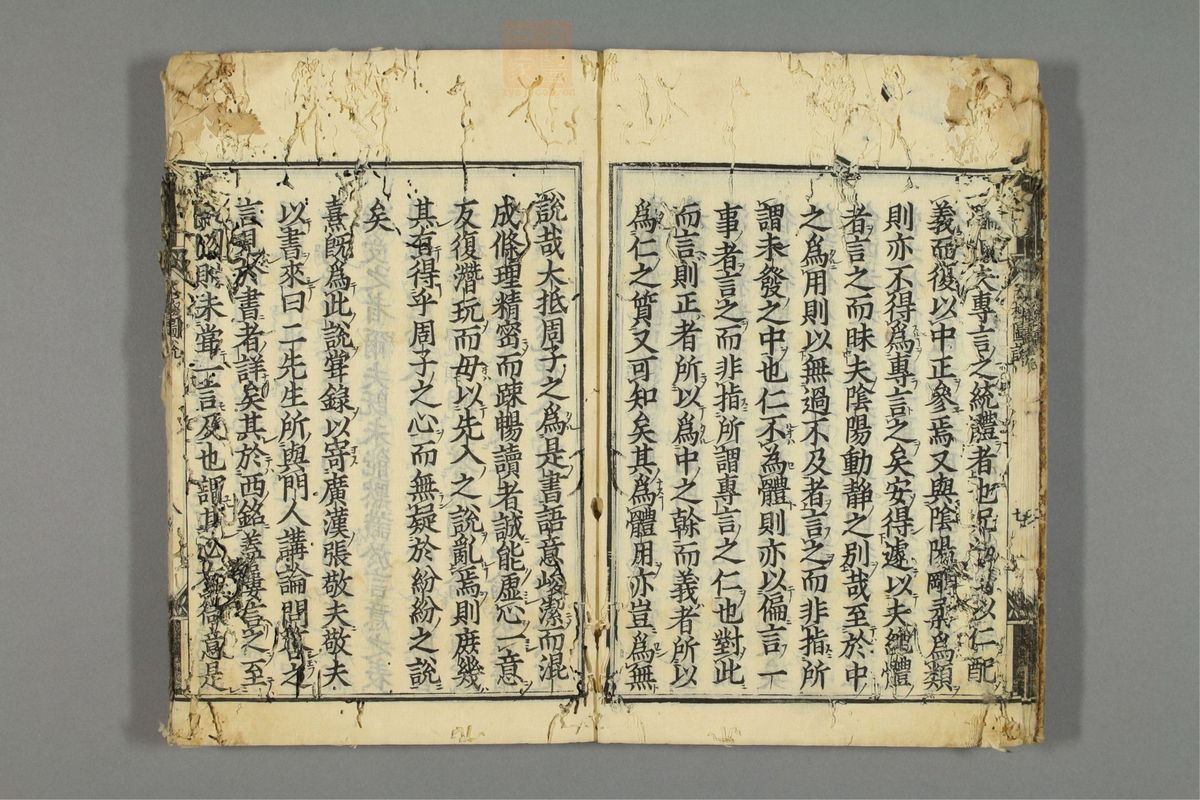 夫專言之統體者也况以仁配
義而復以中正參焉又與陰陽剛柔爲類
則亦不得爲專言之矣安得遽以夫統體
者言之而昧夫陰陽動靜之別哉至於中
之爲用則以無過不及者言之而非指所
謂未發之中也仁不為體則亦以偏言一
事者言之而非指所謂專言之仁也對此
而言則正者所以爲中之榦而義者所以
爲仁之質又可知矣其爲體用亦豈爲無
說哉大抵周子之爲是書語意峻潔而混
成條理精密而疎暢讀者誠能虛心一意
反復潛玩而毋以先入之說亂焉則庶幾
其有得乎周子之心而無疑於紛紛之說
矣
熹旣爲此說甞錄以寄廣漢張敬夫敬夫
以書來曰二先生所與門人講論問答之
言見於書者詳矣其於西銘蓋屢言之至
則未甞一言及也謂其必有微意是